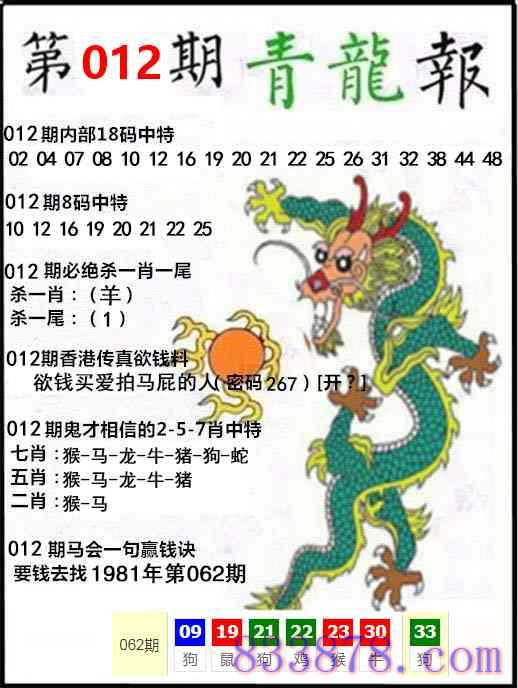 第012期 青龍報
012期内部18码中特
02 04 07 08 10 12 16 19 20 21 22 25 26 31 32 38 44 48
012期8码中特
10 12 16 19 20 21 22 25
012期必绝杀一肖一尾
杀一肖：（羊）
杀一尾：（1）
012期香港传真欲钱料
欲钱买爱拍马屁的人（密码267）[开？]
012期鬼才相信的2-5-7肖中特
七肖：猴-马-龙-牛-猪-狗-蛇
五肖：猴-马-龙-牛-猪
二肖：猴-马
012期马会一句赢钱诀
要钱去找1981年第062期
062期 09 19 21 22 23 30 33
狗 鼠 狗 鸡 猴 牛 狗
833878.com